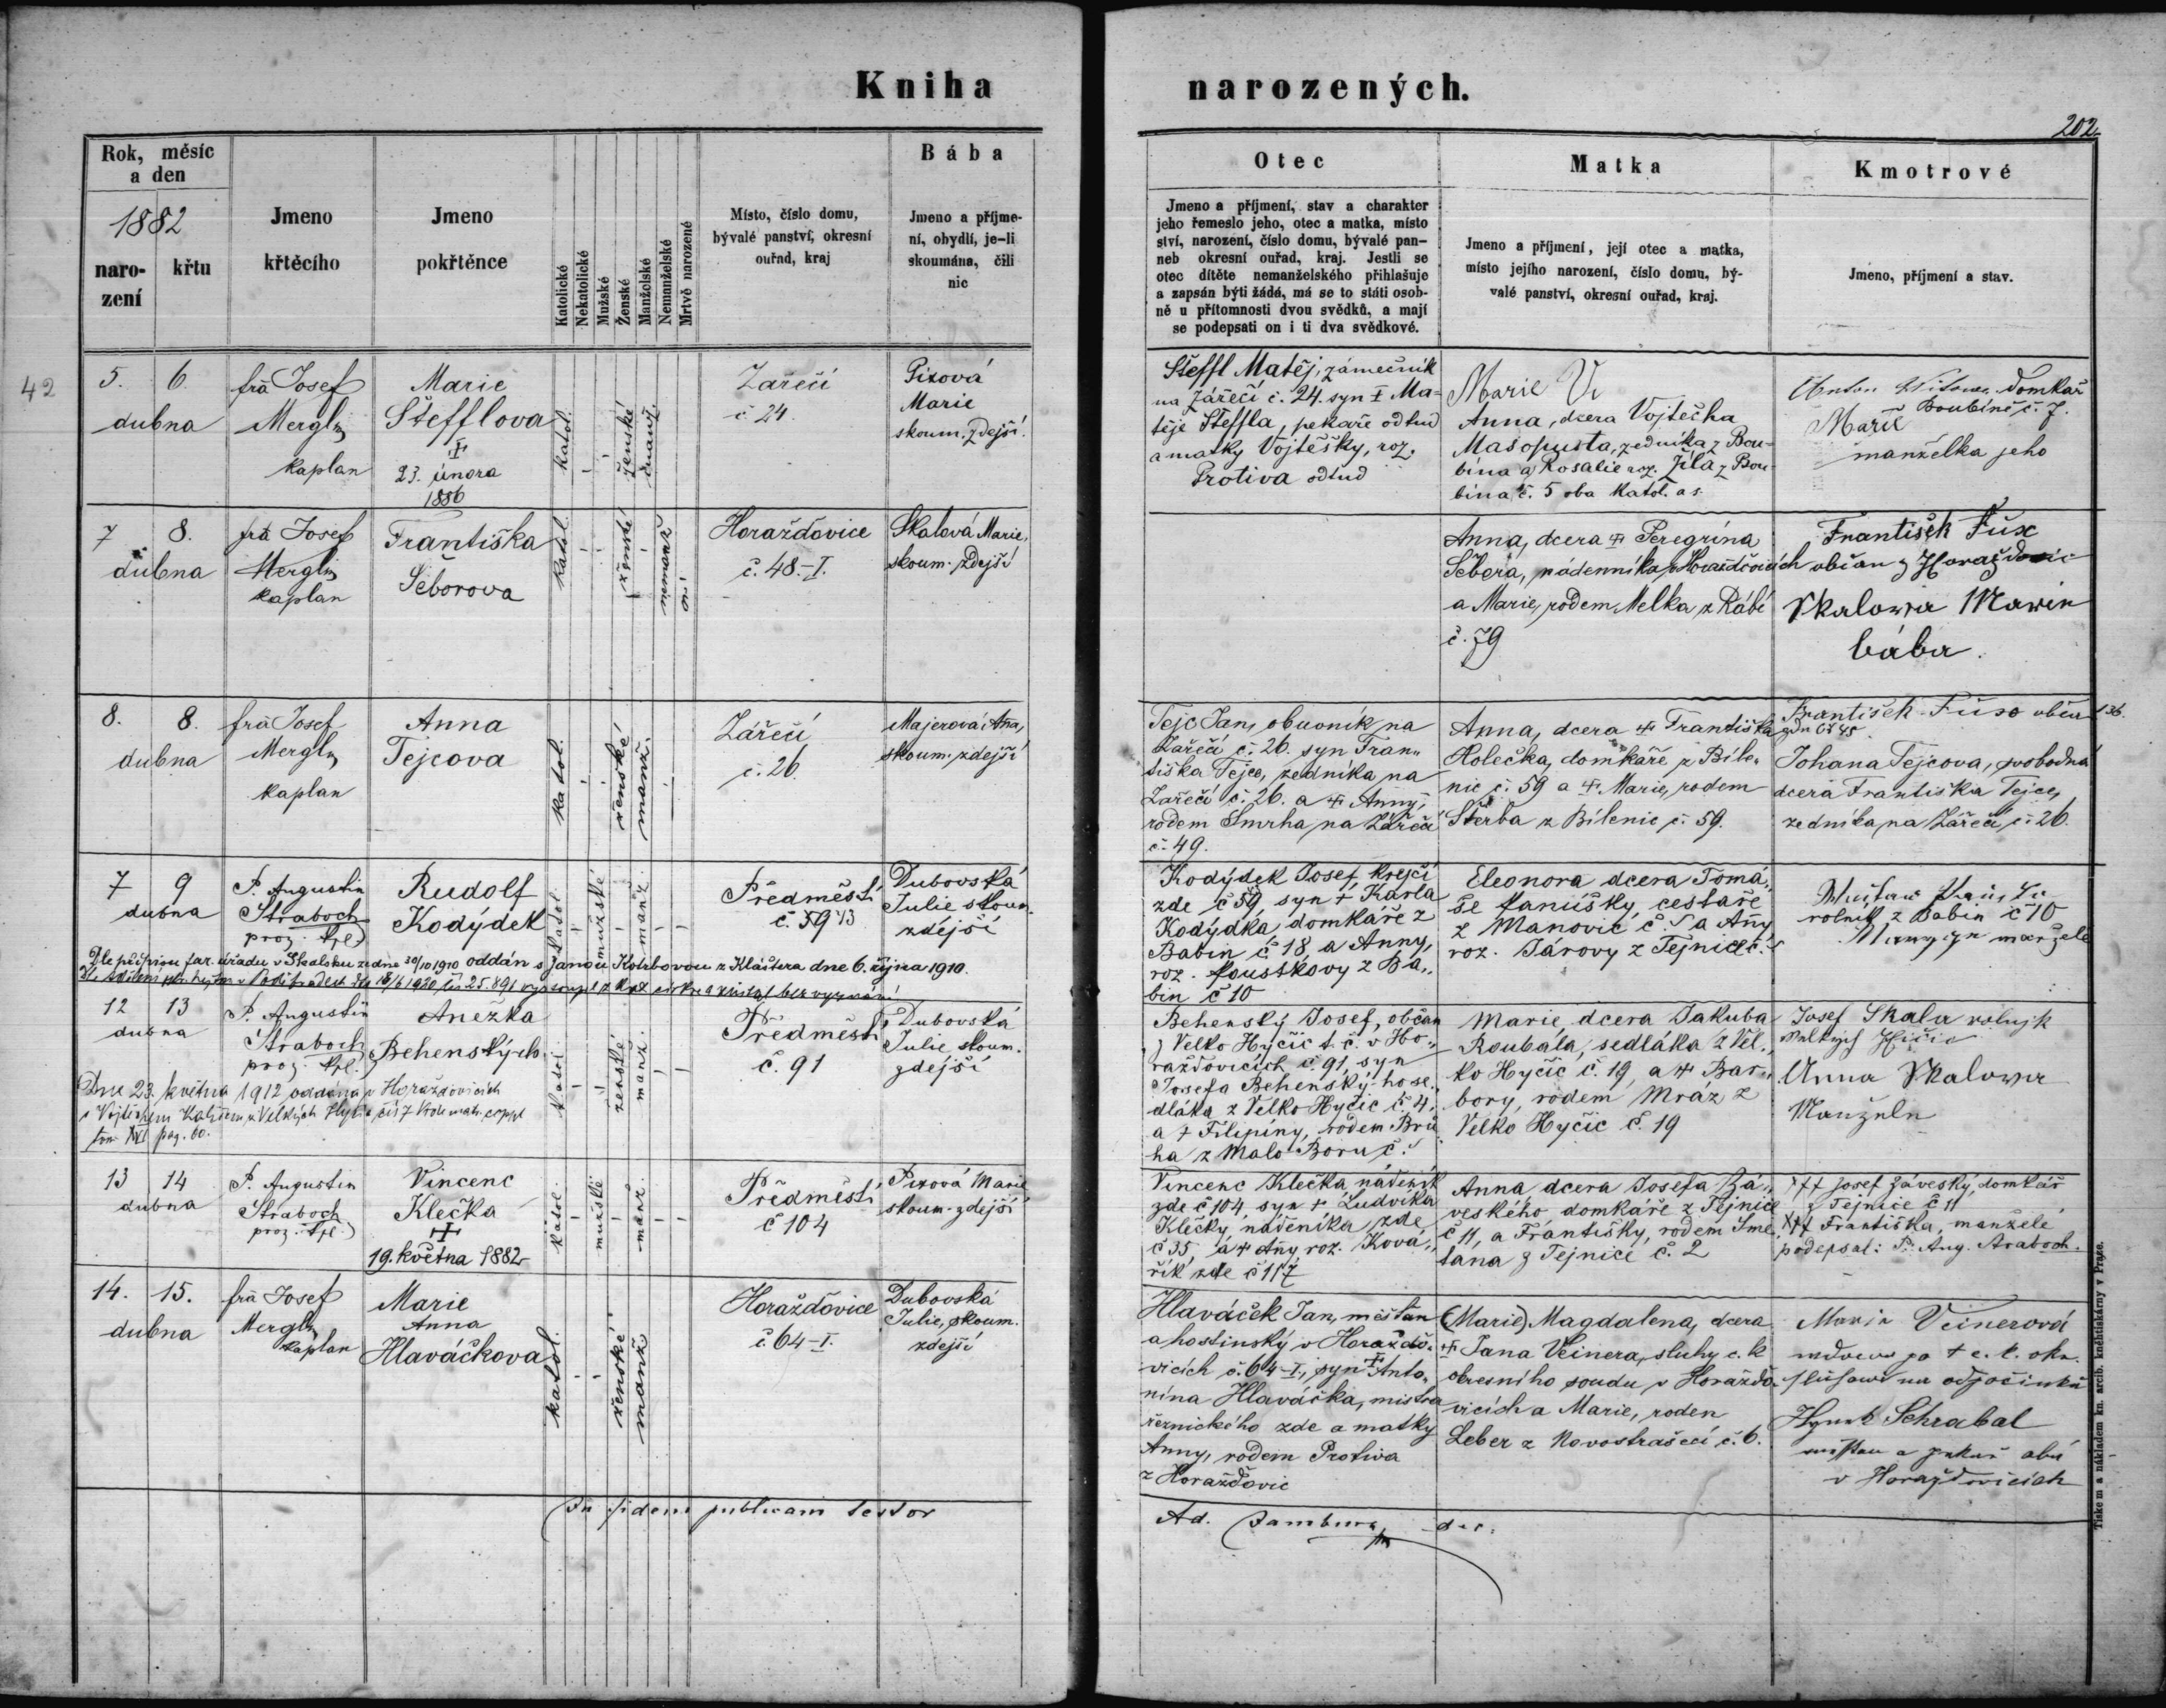 Kniha narozených.
202.
Rok, měsíc
a den
1882
naro-
zení
křtu
Jmeno
křtěcího
Jmeno
pokřtěnce
Katolické
Nekatolické
Mužské
Ženské
Manželské
Nemanželské
Mrtvě narozené
Místo, číslo domu,
bývalé panství, okresní
ouřad, kraj
Bába
Jmeno a příjme-
ní, obydlí, je-li
skoumána, čili
nic
Otec
Jmeno a příjmení, stav a charakter
jeho řemeslo jeho, otec a matka, místo
ství, narození, číslo domu, bývalé pan-
neb okresní ouřad, kraj. Jestli se
otec dítěte nemanželského přihlašuje
a zapsán býti žádá, má se to státi osob-
ně u přítomnosti dvou svědků, a mají
se podepsati on i ti dva svědkové.
Matka
Jmeno a příjmení, její otec a matka,
místo jejího narození, číslo domu, bý-
valé panství, okresní ouřad, kraj.
Kmotrové
Jmeno, příjmení a stav.
42
5. 6.
dubna
fra Josef
Mergl
kaplan
Marie
Štefflova
‡
23. února
1886
katol.
ženské
manž.
Zářečí
č 24.
Pixová
Marie
skoum. zdejší.
Šteffl Matěj, zámečník
na Zářečí č. 24. syn ‡ Ma-
těje Šteffla, pekaře odtud
a matky Vojtěšky, roz.
Protiva odtud
Marie
Anna, dcera Vojtěcha
Masopusta, zedníka z Bou-
bína a Rosalie roz. Jíla z Bou
bína č. 5 oba katol.
Anton domkař
Boubíně č. 7.
Marie
manželka jeho
7 8.
dubna
fra Josef
Mergl
kaplan
Františka
Šeborova
katol.
ženské
nemanž
Horažďovice
č. 48.-I.
Skalová Marie,
skoum. zdejší
Anna, dcera ‡ Peregrína
Šebora, nádenníka z Horažďovicích
a Marie, rodem Melka z Rábí
č. 79
František Fux
občan z Horažďovic
Skalowa Marie
bába.
8. 8.
dubna
fra Josef
Mergl
kaplan
Anna
Tejcova
katol.
ženské
manž.
Zářečí
č. 26.
Majerová Anna,
skoum. zdejší
Tejc Jan, obuvník na
Zářečí č. 26. syn Fran-
tiška Tejce, zedníka na
Zářečí č. 26. a ‡ Anny,
rodem Smrha na Zářečí
č. 49.
Anna, dcera ‡ Františka
Holečka, domkáře z Bíle-
nic č. 59 a ‡. Marie, rodem
Štěrba z Bílenic č. 59.
František Fux občan
Johana Tejcova, svobodná
dcera Františka Tejce,
zedníka na Zářečí č. 26.
7 9
dubna
P. Augustin
Straboch
Rudolf
Kodýdek
katol
mužské
manž.
Předměstí
č. 59
Dubovská
Julie skoum.
zdéjší
Dle přípisu far. úřadu v Skalsku ze dne 30/10 1910 oddán s Janou Kolibovou z Kláštera dne 6. října 1910.
Kodýdek Josef, krejčí
zde č 59, syn + Karla
Kodýdka, domkáře z
Babin č 18, a Anny,
roz. Loustkovy z Ba-
bin č 10
Eleonora dcera Tomá-
še Janíšky, cestaře
z Manovic č. 5 a Anny
roz. Tárovy z Tejnice č.
rolník z Babin č 10
manželé
12 13
dubna
P. Augustin
Straboch
Anežka
Behenských
Dne 23. května 1912 oddána v Horažďovicích
katol.
ženské
manž.
Předměstí
č. 91
Dubovská
Julie skoum.
zdéjší
Behenský Josef, občan
z Velko Hyčic t. č. v Ho-
ražďovicích č. 91, syn
Josefa Behenský-ho se-
dláka z Velko Hyčic č. 4,
a + Filipíny, rodem Brů
ha z Malo Boru č.
Marie, dcera Jakuba
Roubala, sedláka z Vel-
ko Hyčic č. 19, a ‡ Bar-
bory, rodem Mráz z
Velko Hyčic č. 19
Josef Skala rolnjk
Anna Skalowa
Manželn
13 14
dubna
P. Augustin
Straboch
Vincenc
Klečka
‡
19. května 1882
katol.
mužské
manž.
Předměstí
č 104
Pixová Marie
skoum. zdejší
Vincenc Klečka nádeník
zde č 104, syn + Ludvíka
Klečky, nádeníka zde
č 35, a ‡ Anny, roz. Ková-
řík zde č 117
Anna, dcera Josefa Zá-
veského, domkáře z Tejnice
č 11, a Františky, rodem Sme
tana z Tejnice č. 2
+++ Josef Záveský, domkář
z Tejnice č 11
+++ Františka, manželé
podepsal: P. Aug. Straboch.
14. 15.
dubna
fra Josef
Mergl
kaplan
Marie
Anna
Hlaváčkova
katol.
ženské
manž
Horažďovice
č. 64-I.
Dubovská
Julie, skoum.
zdejší
Hlaváček Jan, měšťan
a hostinský v Horažďo-
vicích č. 64-I, syn ‡ Anto-
nína Hlaváčka, mistra
řeznického zde a matky
Anny, rodem Protiva
z Horažďovic
(Marie) Magdalena, dcera
‡ Jana Veinera, sluhy c. k
okresního soudu v Horažďo-
vicích a Marie, rodem
Leber z Novostrašecí č. 6.
Marie Veinerová
vdova po + c. k. okr.
Hynek Schrabal
v Horažďovicích
In fidem publicam testor
Ad. Jambura
Tiskem a nákladem kn. arcib. kněhtiskárny v Praze.